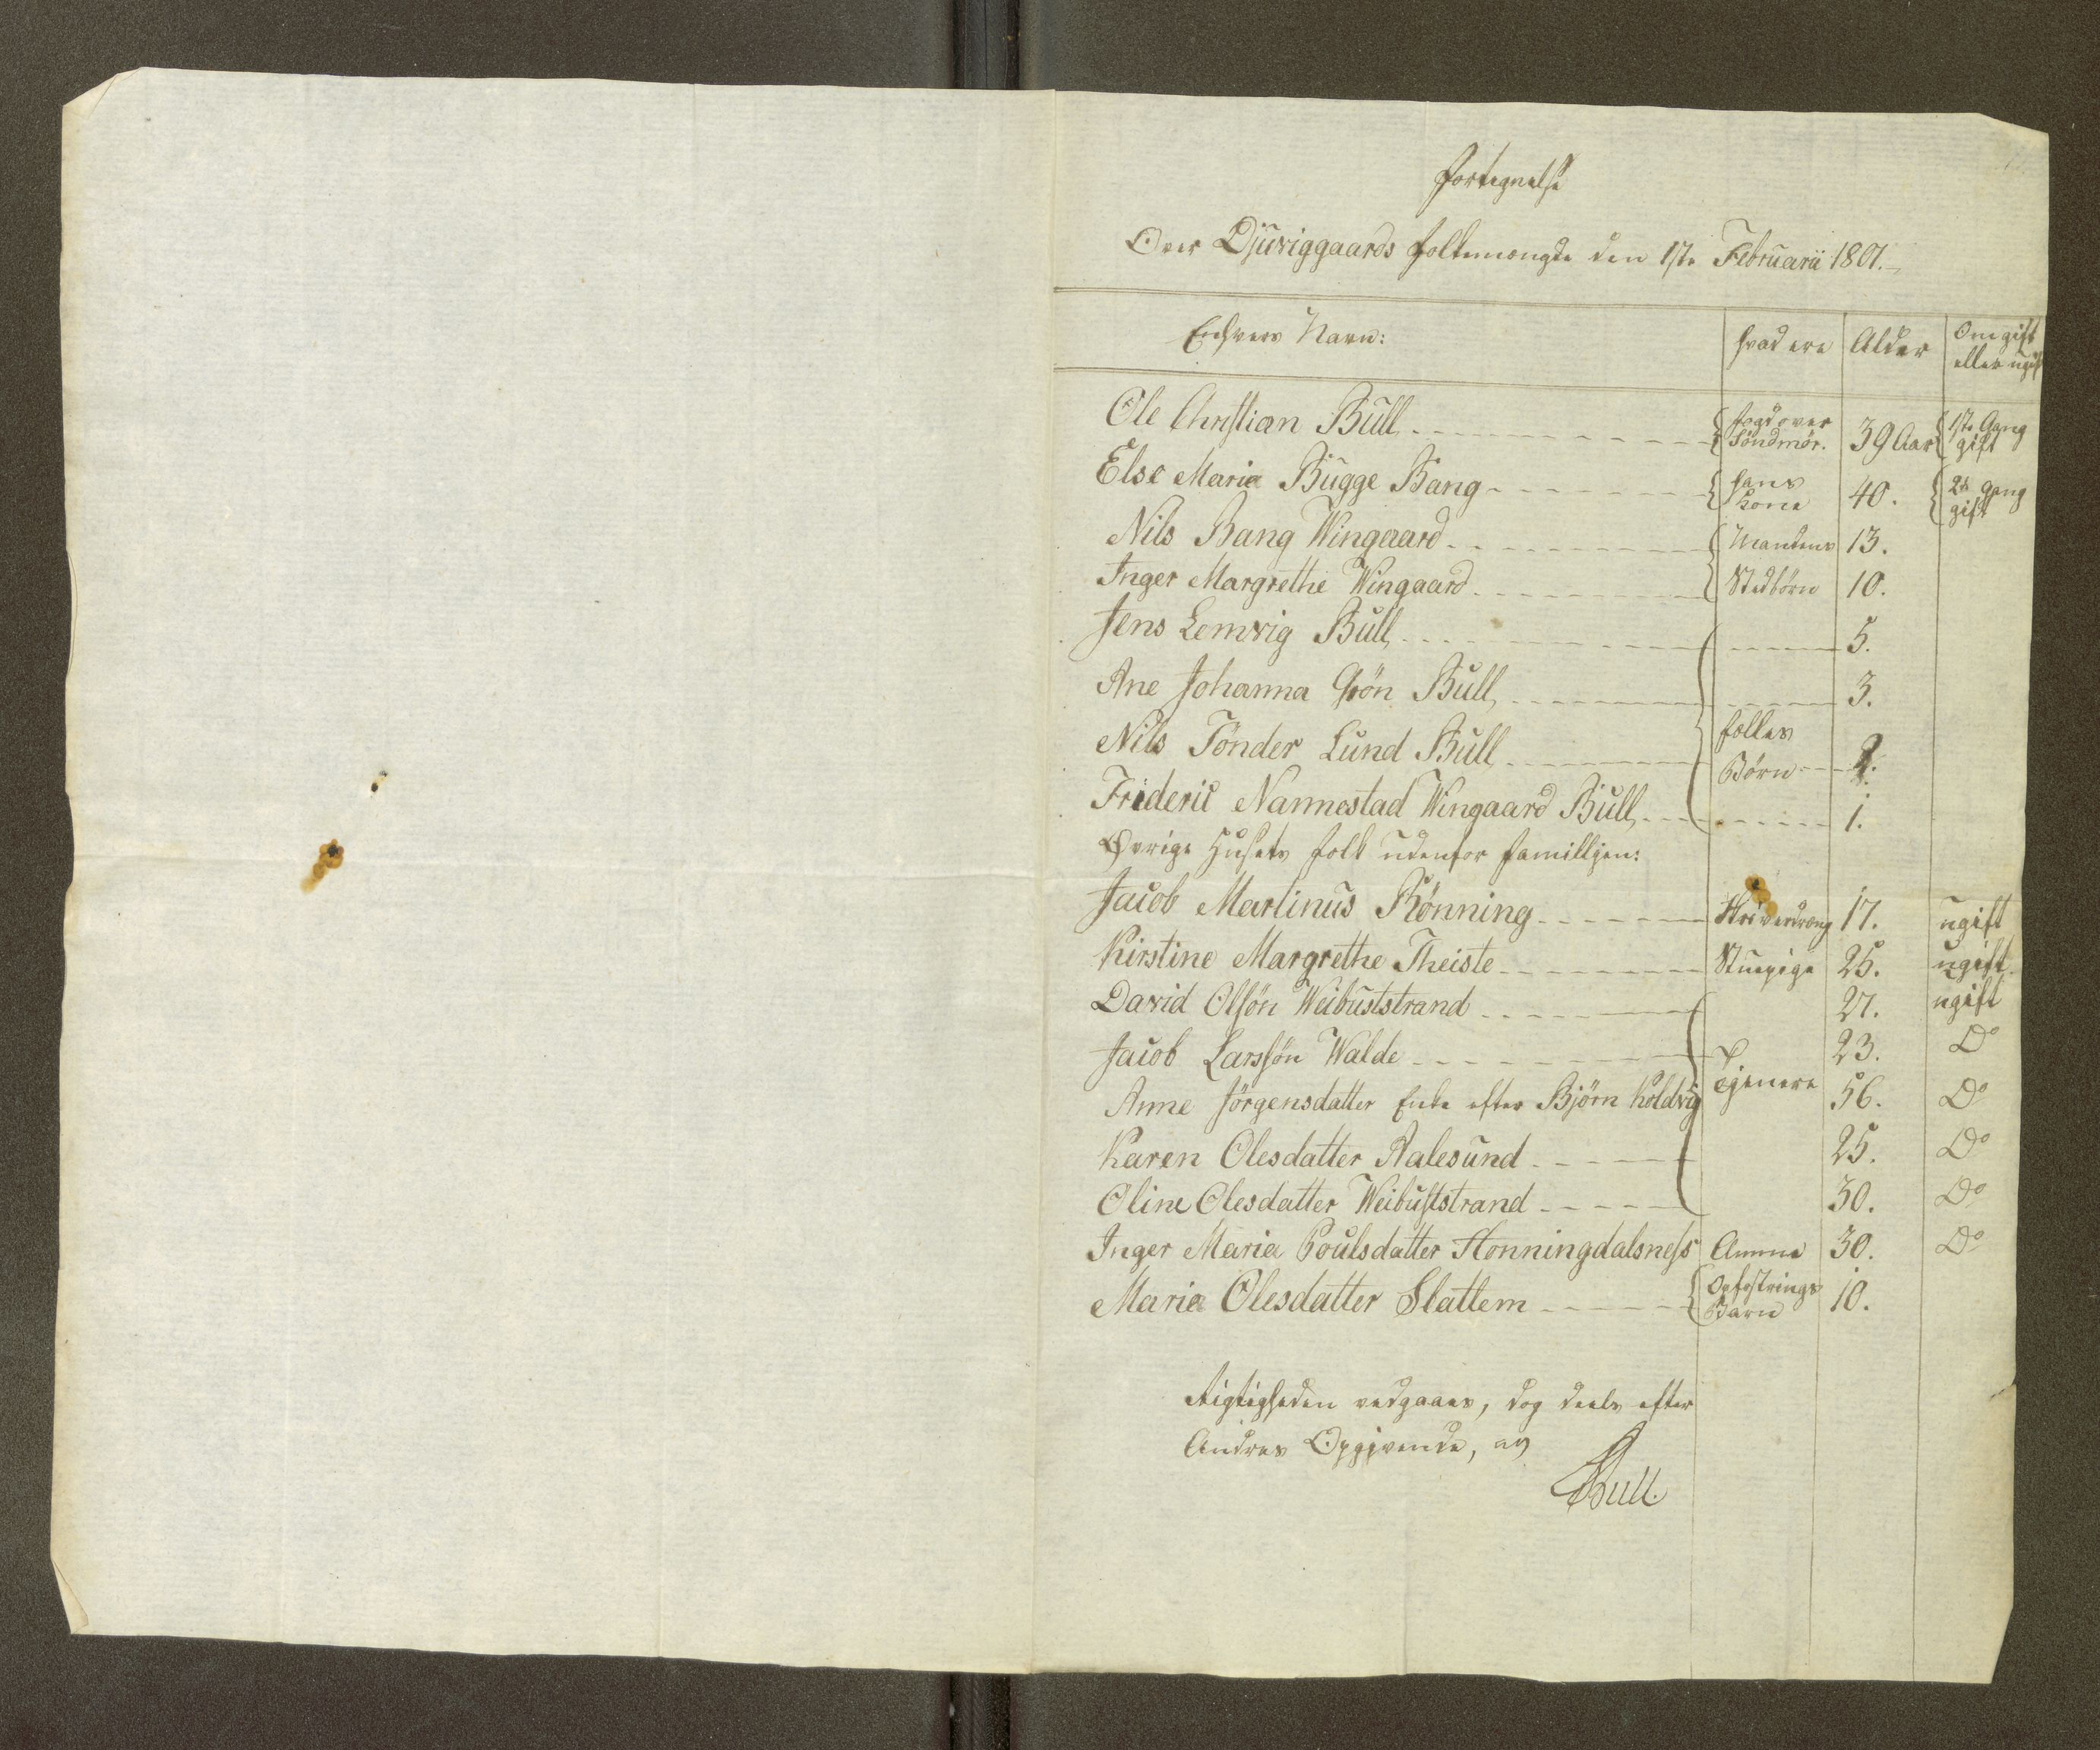 Fortegnelse
Over Djuviggaards Folkemængde den 1ste Februarii 1801.
Enhvers Navn: hvad ere Alder Om gift
eller ugift
Ole Christian Bull Foged over Söndmör. 39 Aar 1ste Gang gift
Else Maria Bugge Bang hans Kone 40. 2de Gang gift
Nils Bang Wingaard Mandens 13.
Inger Margrethe Wingaard Stedbörn 10.
Jens Lemvig Bull 5.
Ane Johanna Grön Bull 3.
Nils Tönder Lund Bull fælles Börn 2.
Frideric Nannestad Wingaard Bull 1.
Øvrige Husets Folk udenfor Familljen:
Jacob Martinus Rönning Skriverdreng 17. ugift
Kirstine Margrethe Theiste Stuepige 25. ugift
David Olsön Weibuststrand 27. ugift
Jacob Larssön Walde 23. Do
Anne Jörgensdatter Enke efter Björn Koldvig Tjenere 56. Do
Karen Olesdatter Aalesund 25. Do
Oline Olesdatter Weibuststrand 30. Do
Inger Maria Poulsdatter Honningdalsness Amme 30. Do
Maria Olesdatter Slattem Opfostrings Barn 10.
Rigtigheden vedgaaes, dog deels efter
Andres Opgivende, af
Bull.